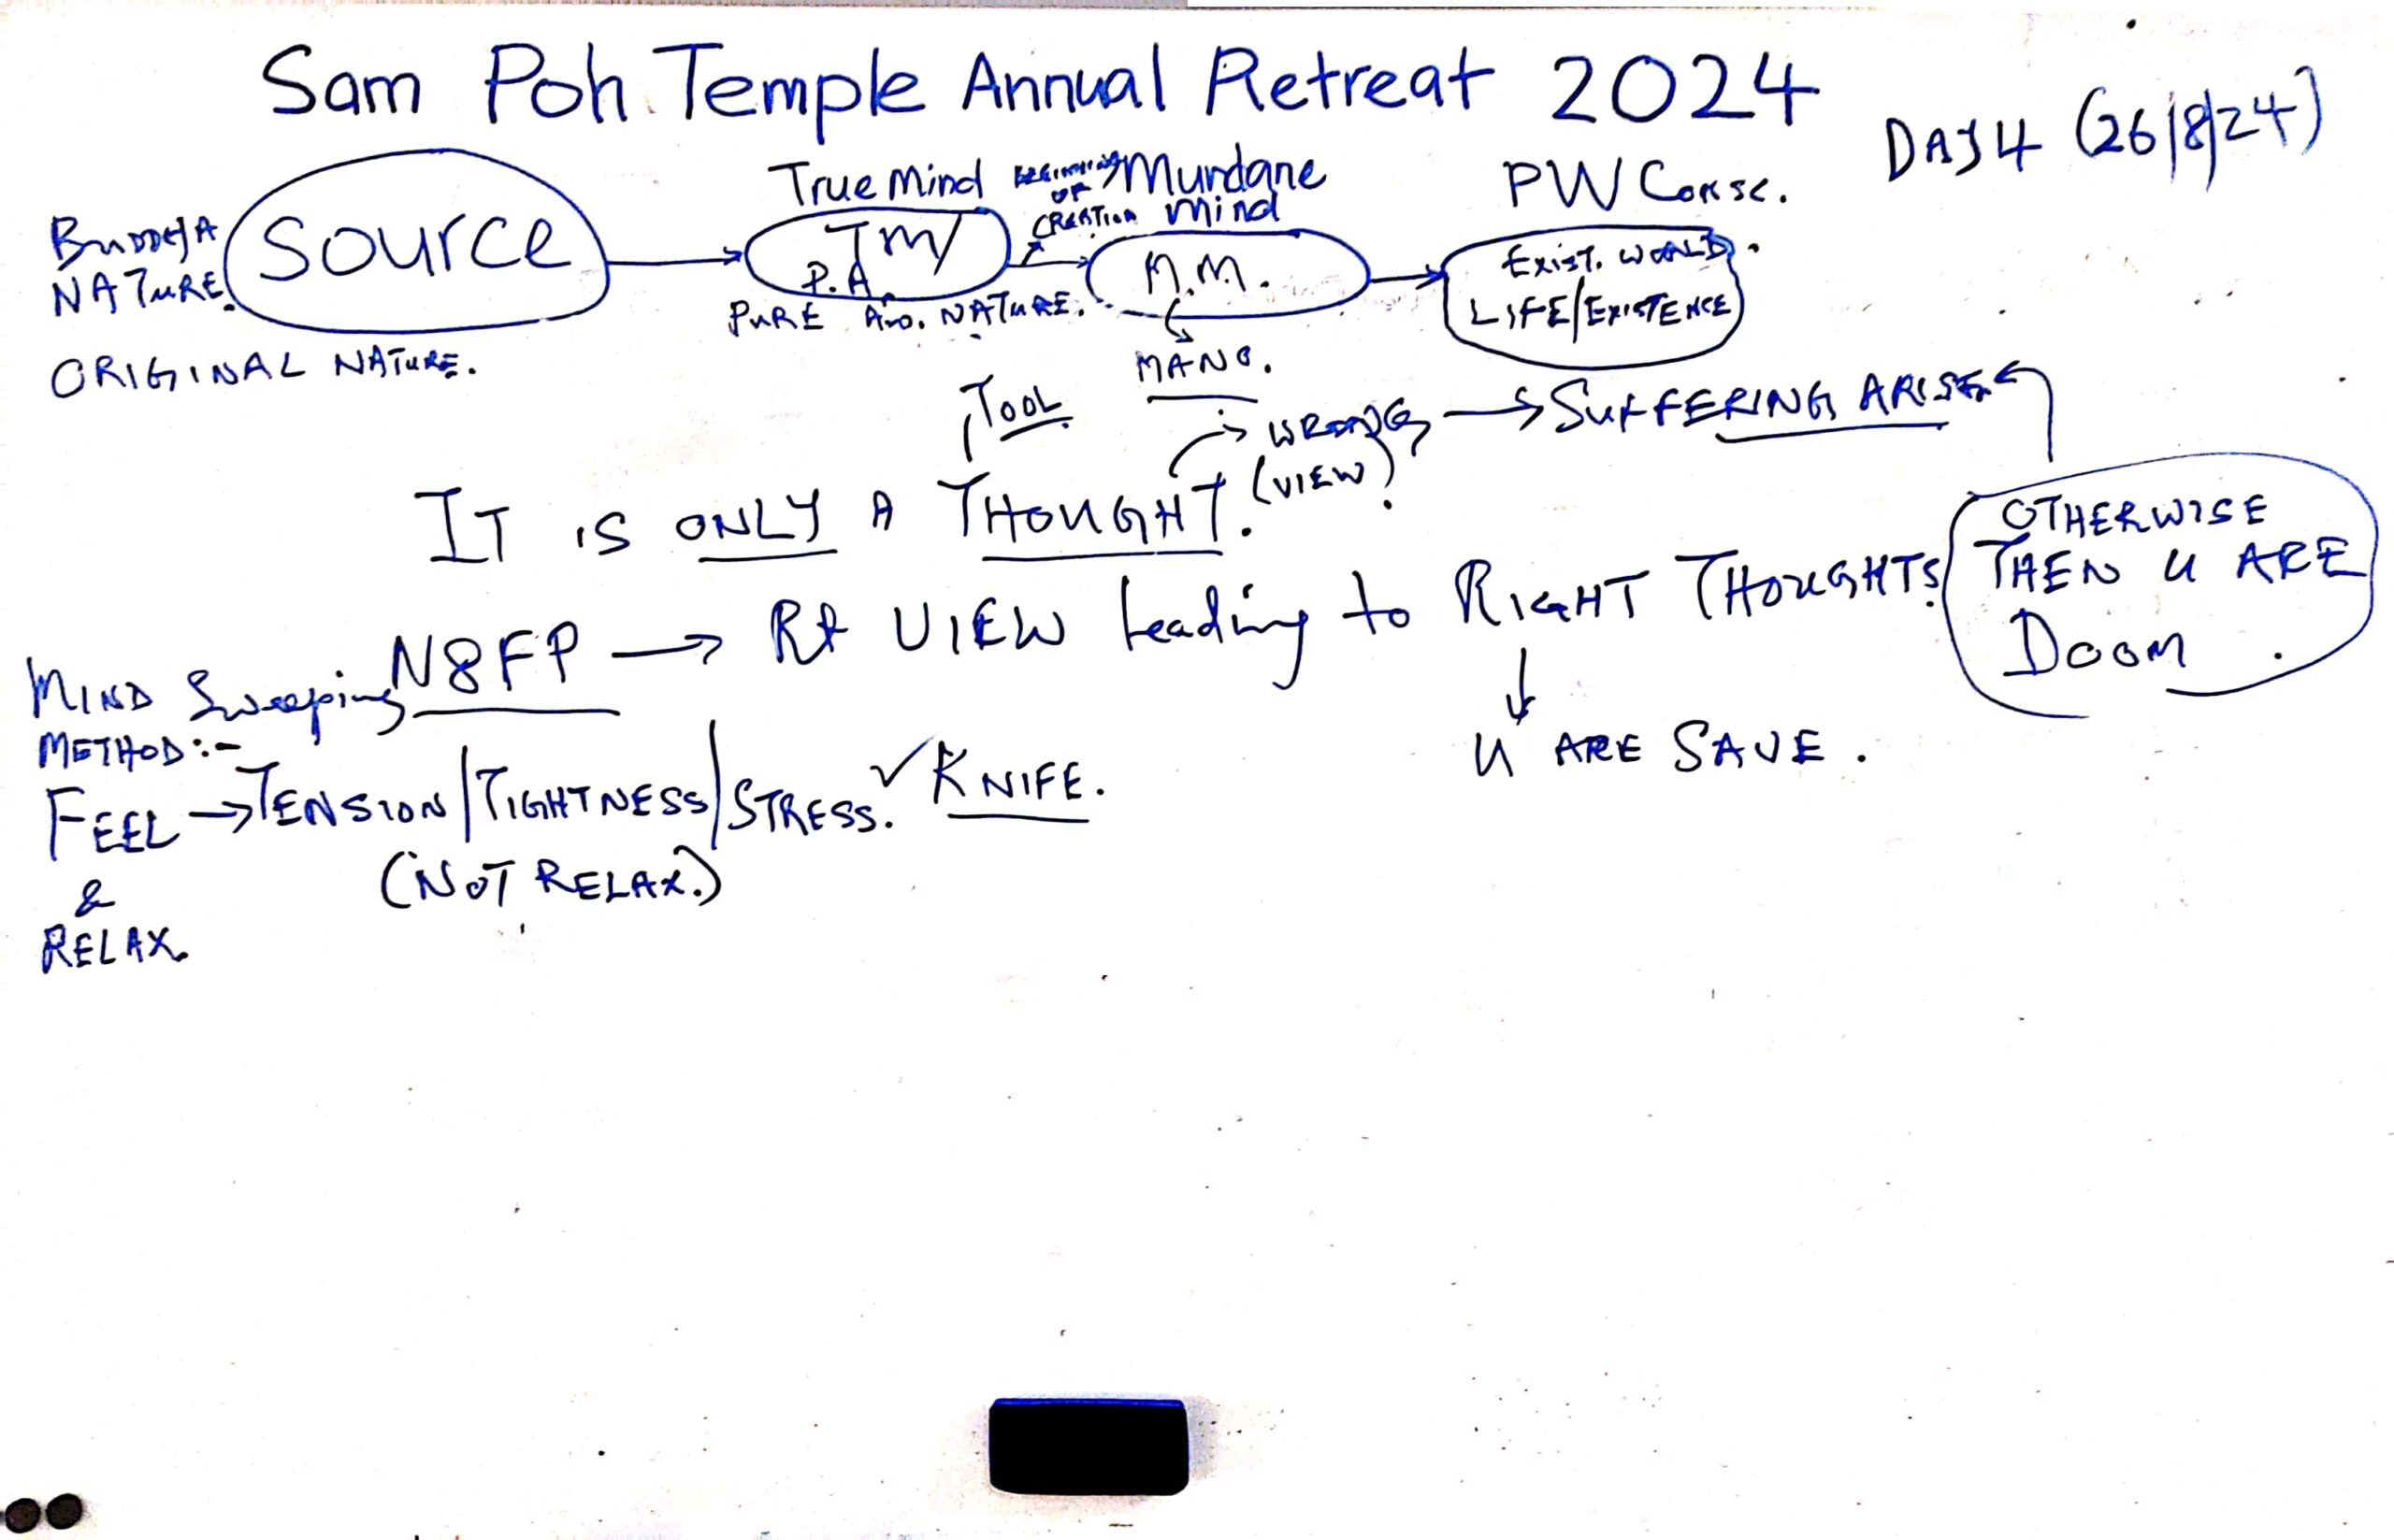 Sam Poh Temple Annual Retreat 2024
DAY 4 (26/8/24)
True Mind
BEGINNING OF CREATION
Mundane Mind
PW Consc.
BUDDHA NATURE.
Source
TM/
P.A.
M.M.
EXIST. WORLD.
LIFE/EXISTENCE
PURE AW. NATURE.
ORIGINAL NATURE.
MANO.
TOOL
WRONG (VIEW).
SUFFERING ARISE
IT IS ONLY A THOUGHT.
OTHERWISE
THEN U ARE
DOOM.
N8FP → Rt VIEW Leading to RIGHT THOUGHTS
U ARE SAVE.
MIND Sweeping
METHOD:-
FEEL → TENSION/TIGHTNESS/STRESS. ✓ KNIFE.
& (NOT RELAX.)
RELAX.